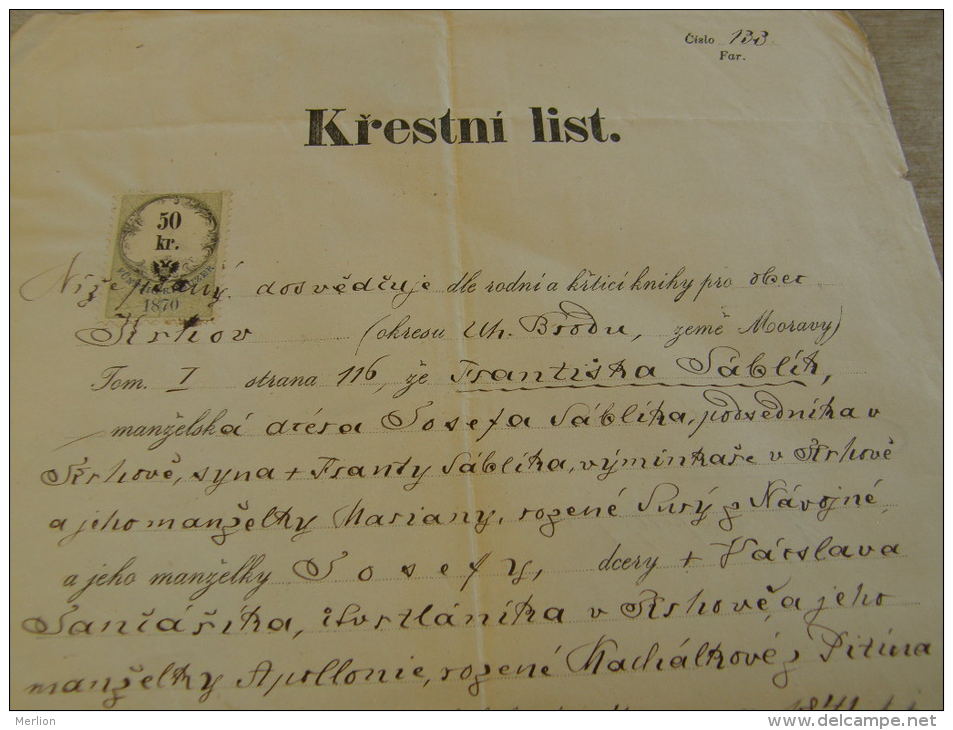 Číslo 133
Far.
Křestní list.
50
kr.
1870
Níže psaný dosvědčuje dle rodní a křticí knihy pro obec
Krhov (okresu Uh. Brodu, země Moravy)
Tom. I strana 116, že Františka Sáblík,
manželská dcera Josefa Sáblíka, podsedníka v
Krhově, syna + Franty Sáblíka, výminkaře v Krhově
a jeho manželky Mariany, rozené Surý z Návojné
a jeho manželky Josefy, dcery + Václava
Jančáříka, čtvrtláníka v Krhově, a jeho
manželky Apollonie, rozené Machálkové z Pitína
Merlion
www.delcampe.net